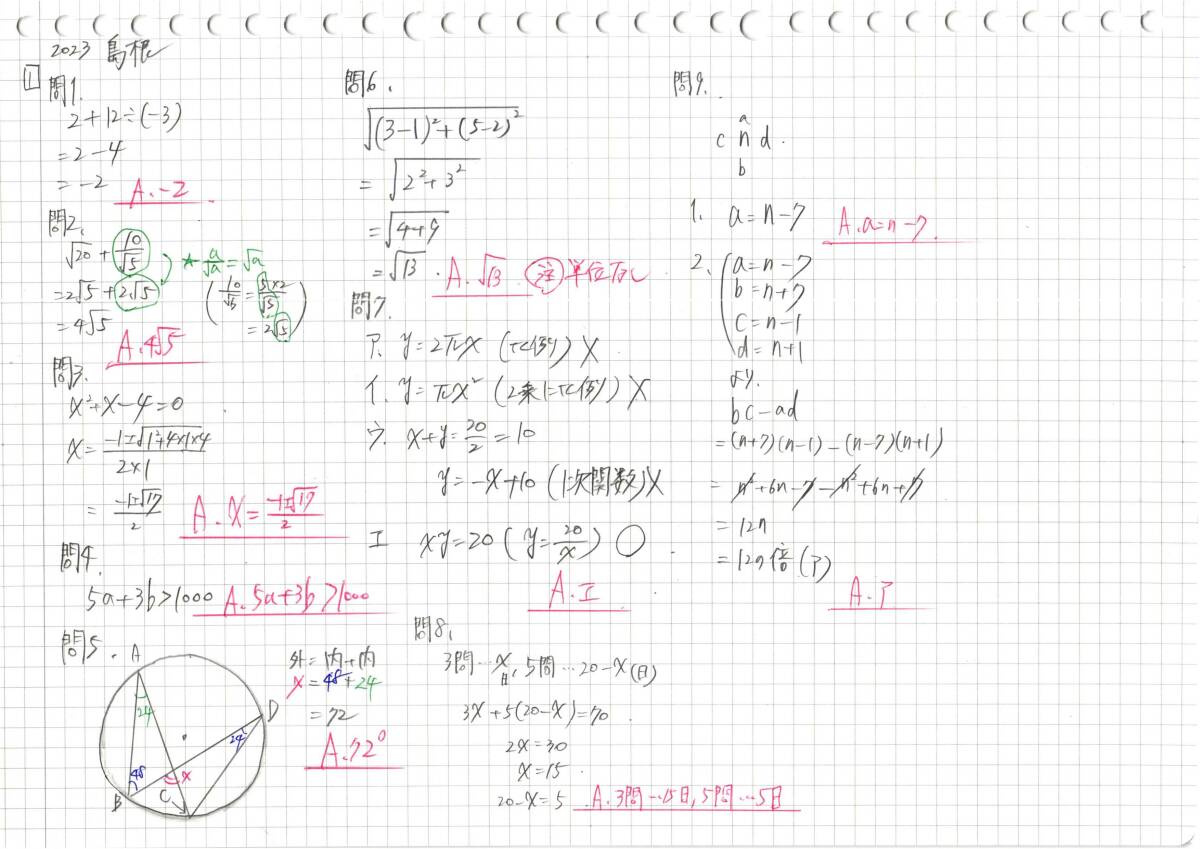 2023 島根
1
問1.
2+12÷(-3)
=2-4
=-2 A.-2
問2.
√20+10/√5 ★ a/√a=√a
=2√5+2√5 (10/√5=5×2/√5
=4√5 =2√5)
A.4√5
問3.
x²+x-4=0
x=-1±√1²+4×1×4/2×1
=-1±√17/2 A.x=-1±√17/2
問4.
5a+3b>1000 A.5a+3b>1000
問5.
A
24
D
24
48
x
B
C
外=内+内
x=48+24
=72
A.72°
問6.
√(3-1)²+(5-2)²
=√2²+3²
=√4+9
=√13. A.√13 注 単位なし
問7.
ア. y=2πx (比例) ×
イ. y=πx² (2乗に比例) ×
ウ. x+y=20/2=10
y=-x+10 (1次関数)×
エ xy=20(y=20/x) ○
A.エ
問8.
3問…x日, 5問…20-x(日)
3x+5(20-x)=70
2x=30
x=15
20-x=5 A.3問…15日, 5問…5日
問9.
a
c n d.
b
1. a=n-7 A.a=n-7.
2. a=n-7
b=n+7
c=n-1
d=n+1
より.
bc-ad
=(n+7)(n-1)-(n-7)(n+1)
=n²+6n-7-n²+6n+7
=12n
=12の倍(ア)
A.ア